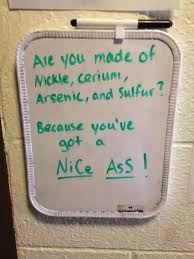 Are you made of
Nickle, cerium,
Arsenic, and Sulfur?
Because you've
got a
NiCe AsS!